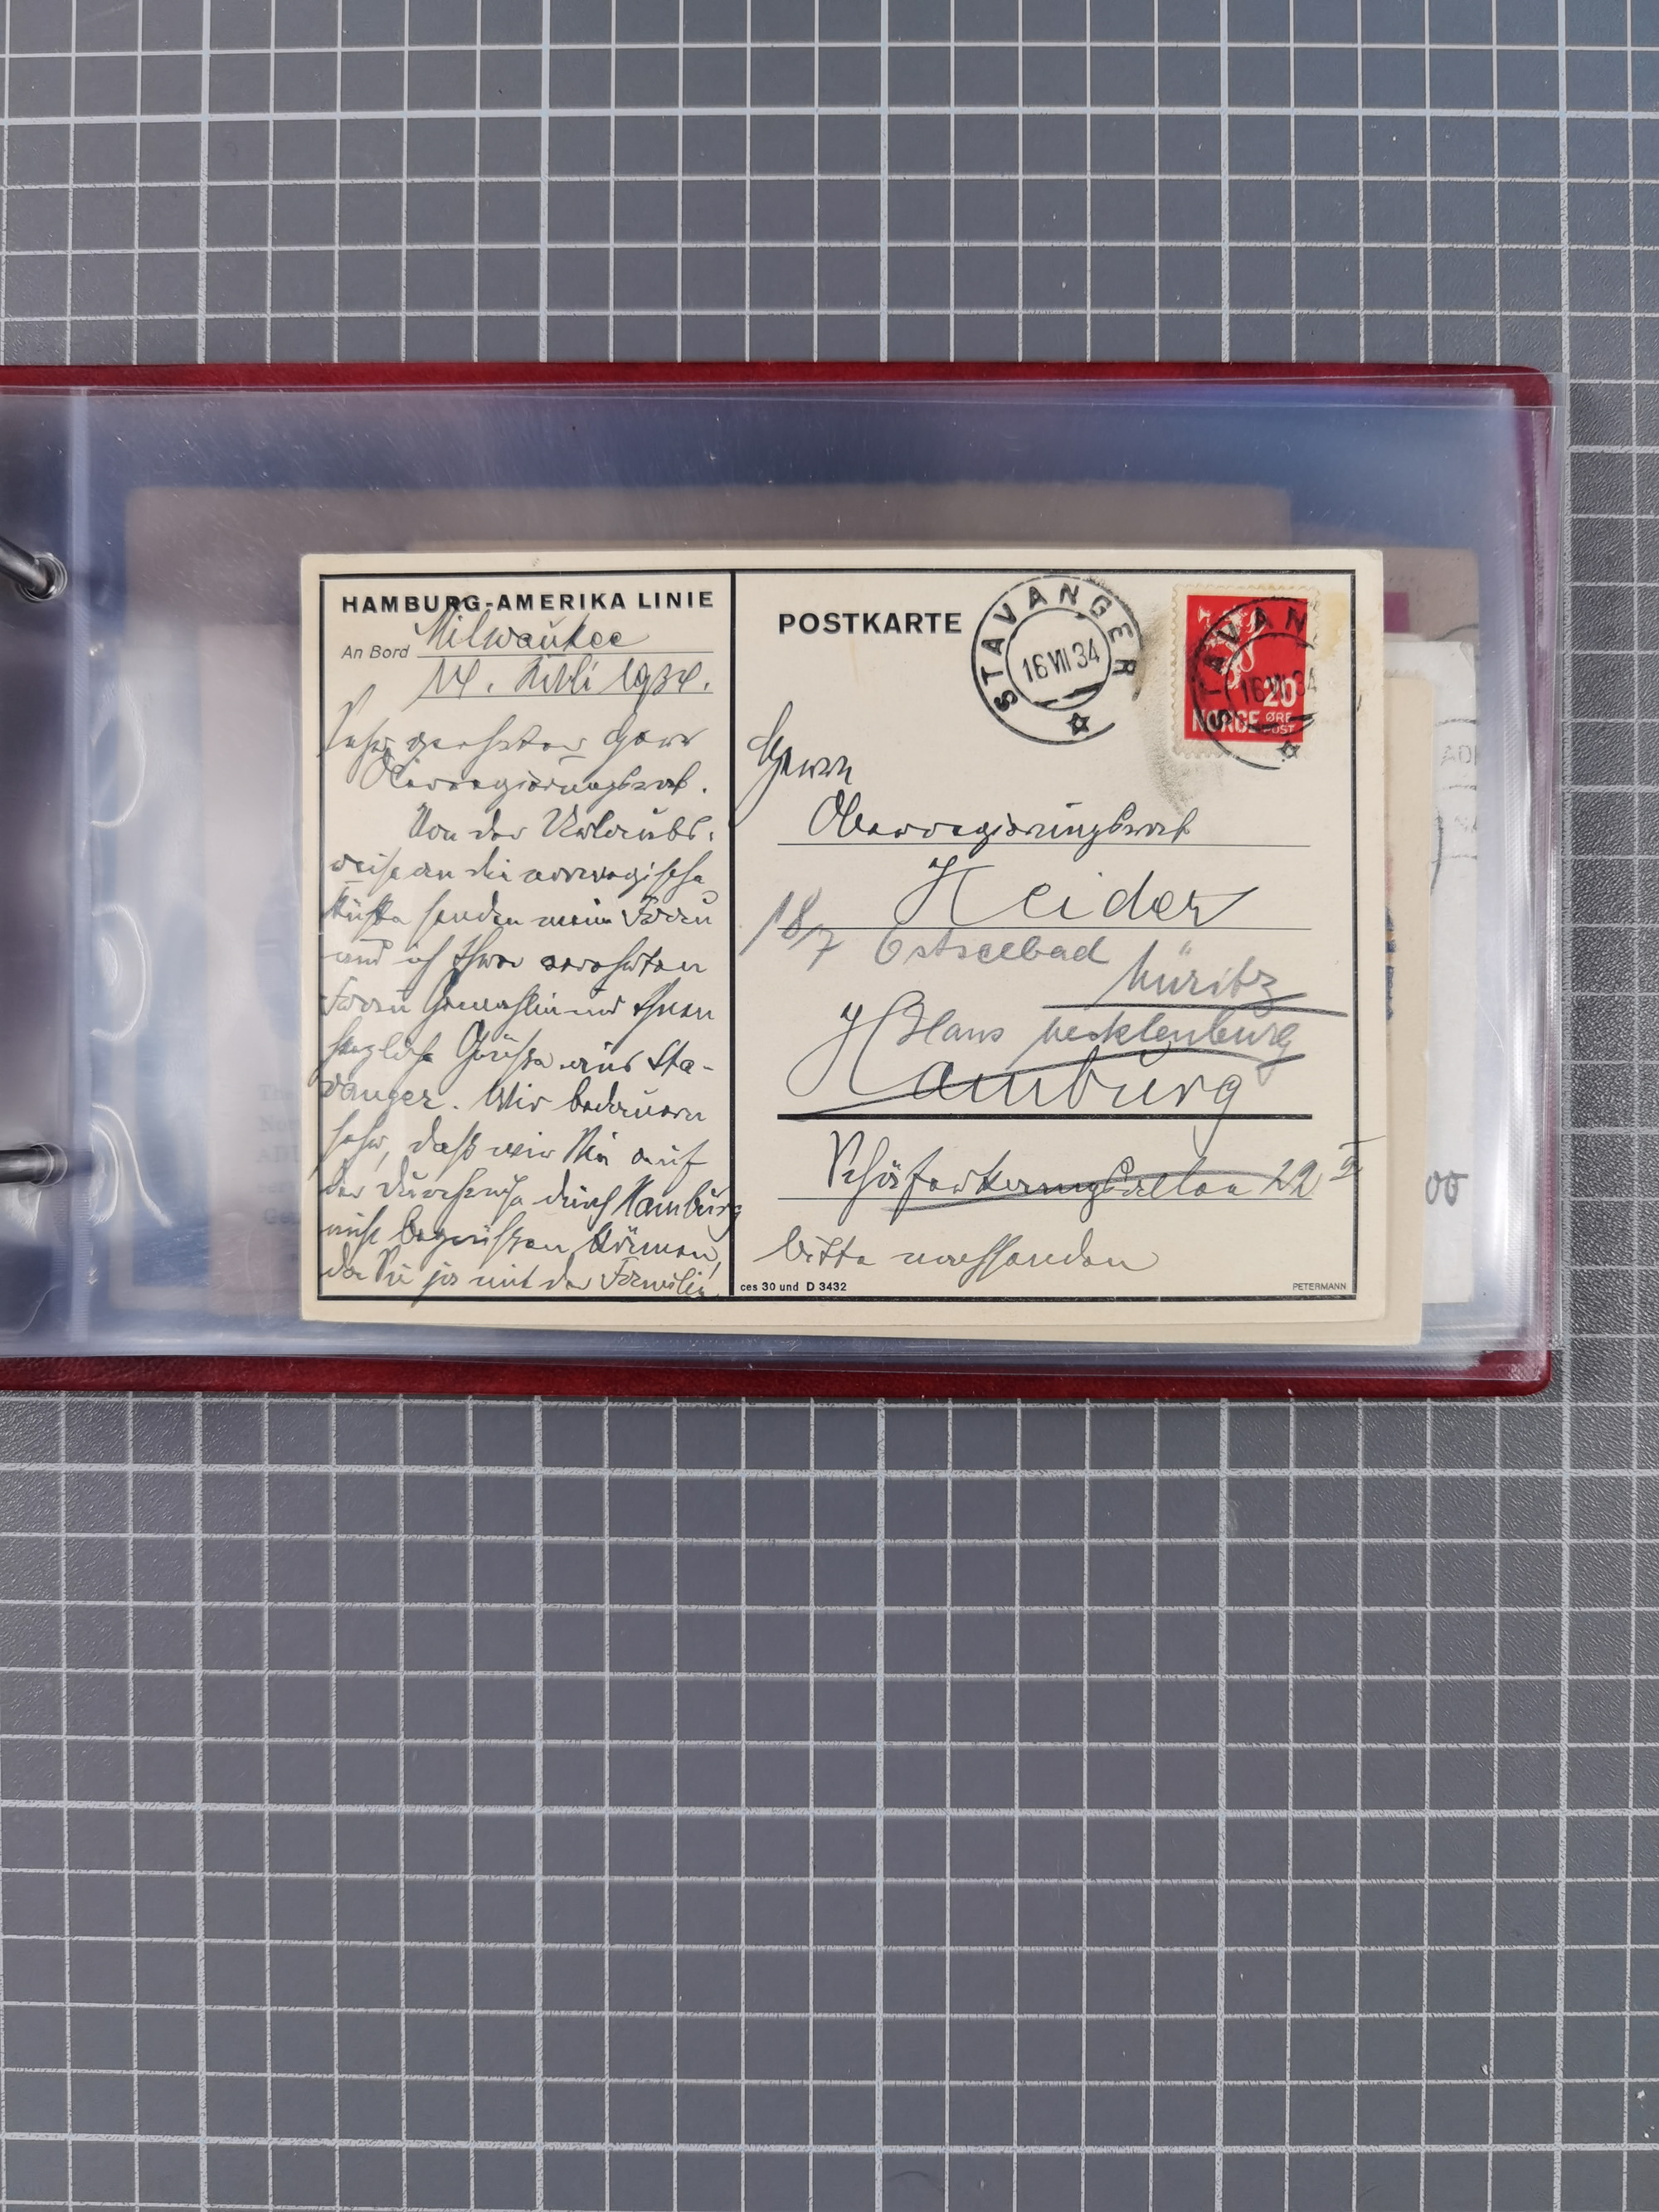 HAMBURG-AMERIKA LINIE
An Bord Milwaukee
14. Juli 1934.
Sehr geehrter Herr
Oberregierungsrat.
Von der Urlaubs-
reise an die norwegische
Küste senden meine Frau
und ich Ihrer verehrten
Frau Gemahlin und Ihnen
herzliche Grüße aus Sta-
vanger. Wir bedauern
sehr, daß wir Sie auf
der Durchreise durch Hamburg
nicht begrüßen können,
da Sie ja mit der Familie
POSTKARTE
STAVANGER
16 VII 34
STAVAN
16 VII 34
20
NORGE ØRE
POST
Herrn
Oberregierungsrat
Heider
18/7 Ostseebad
Müritz
Haus Mecklenburg
Hamburg
Schäferkampsallee 22 II
bitte nachsenden
ces 30 und D 3432
PETERMANN
00